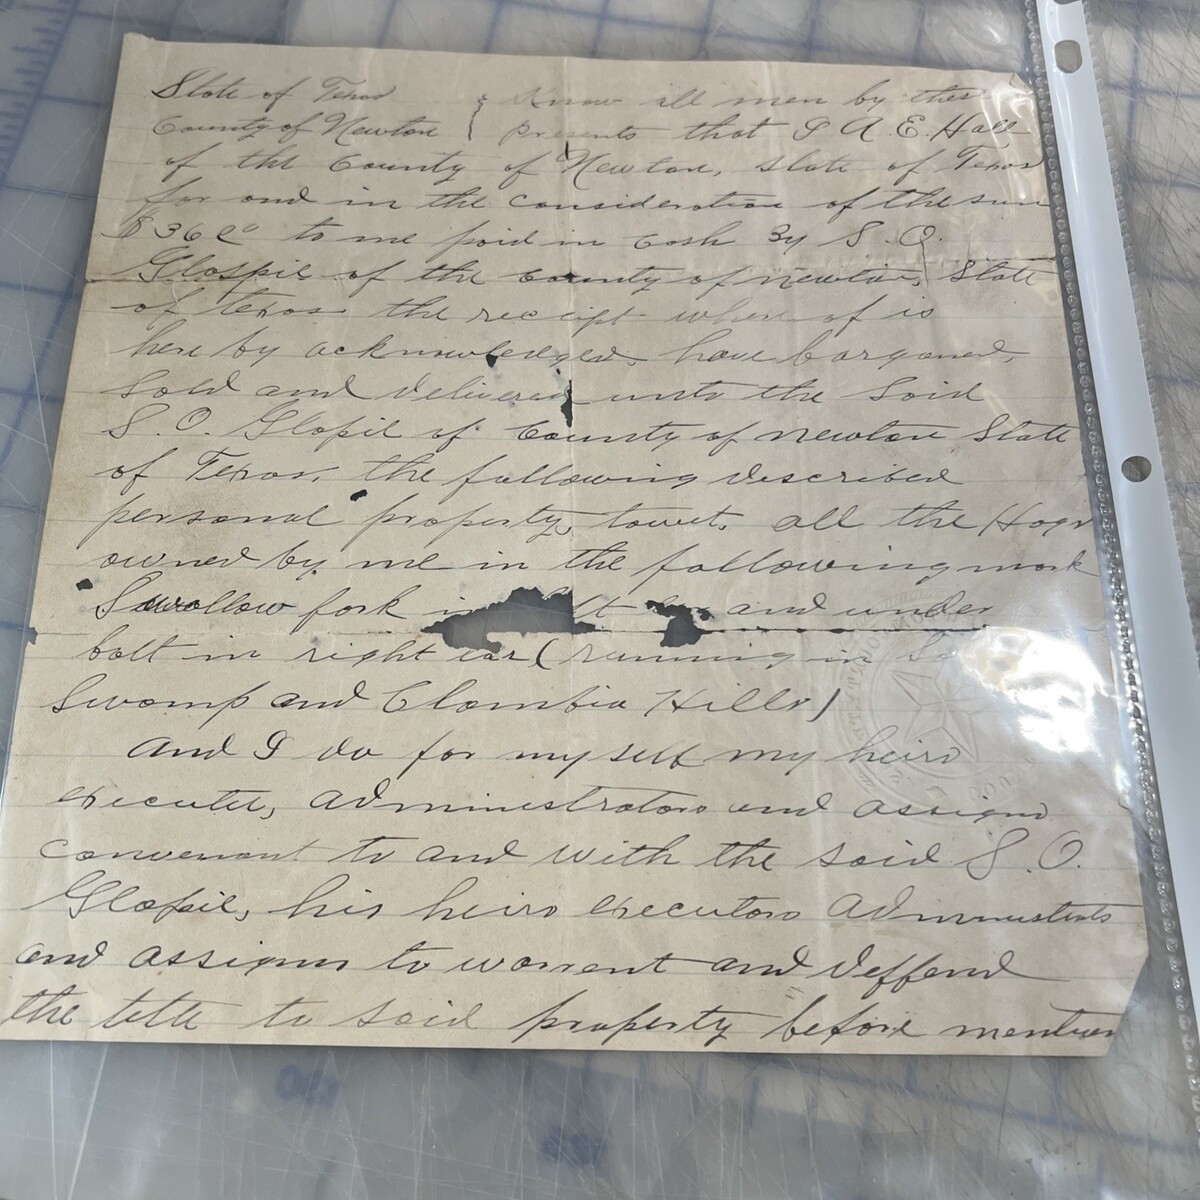 State of Texas { Know all men by these
County of Newton { presents that I A. E. Hall
of the County of Newton, State of Texas
for and in the consideration of the sum
to me paid in Cash By S. O.
Glaspil of the County of Newton, State
of Texas the receipt where of is
here by acknowledged, have bargained,
Sold and delivered unto the Said
S. O. Glaspil of County of Newton State
of Texas, the following described
personal property, towit, all the Hogs
owned by me in the following mark
Swallow fork in and under
bolt in right ear (running in
Swamp and Clombia Hills)
And I do for my self my heirs
executes, Administrators and assigns
convenant to and with the said S. O.
Glaspil, his heirs executors Administrats
and assigns to warrent and deffend
the title to said property before mention